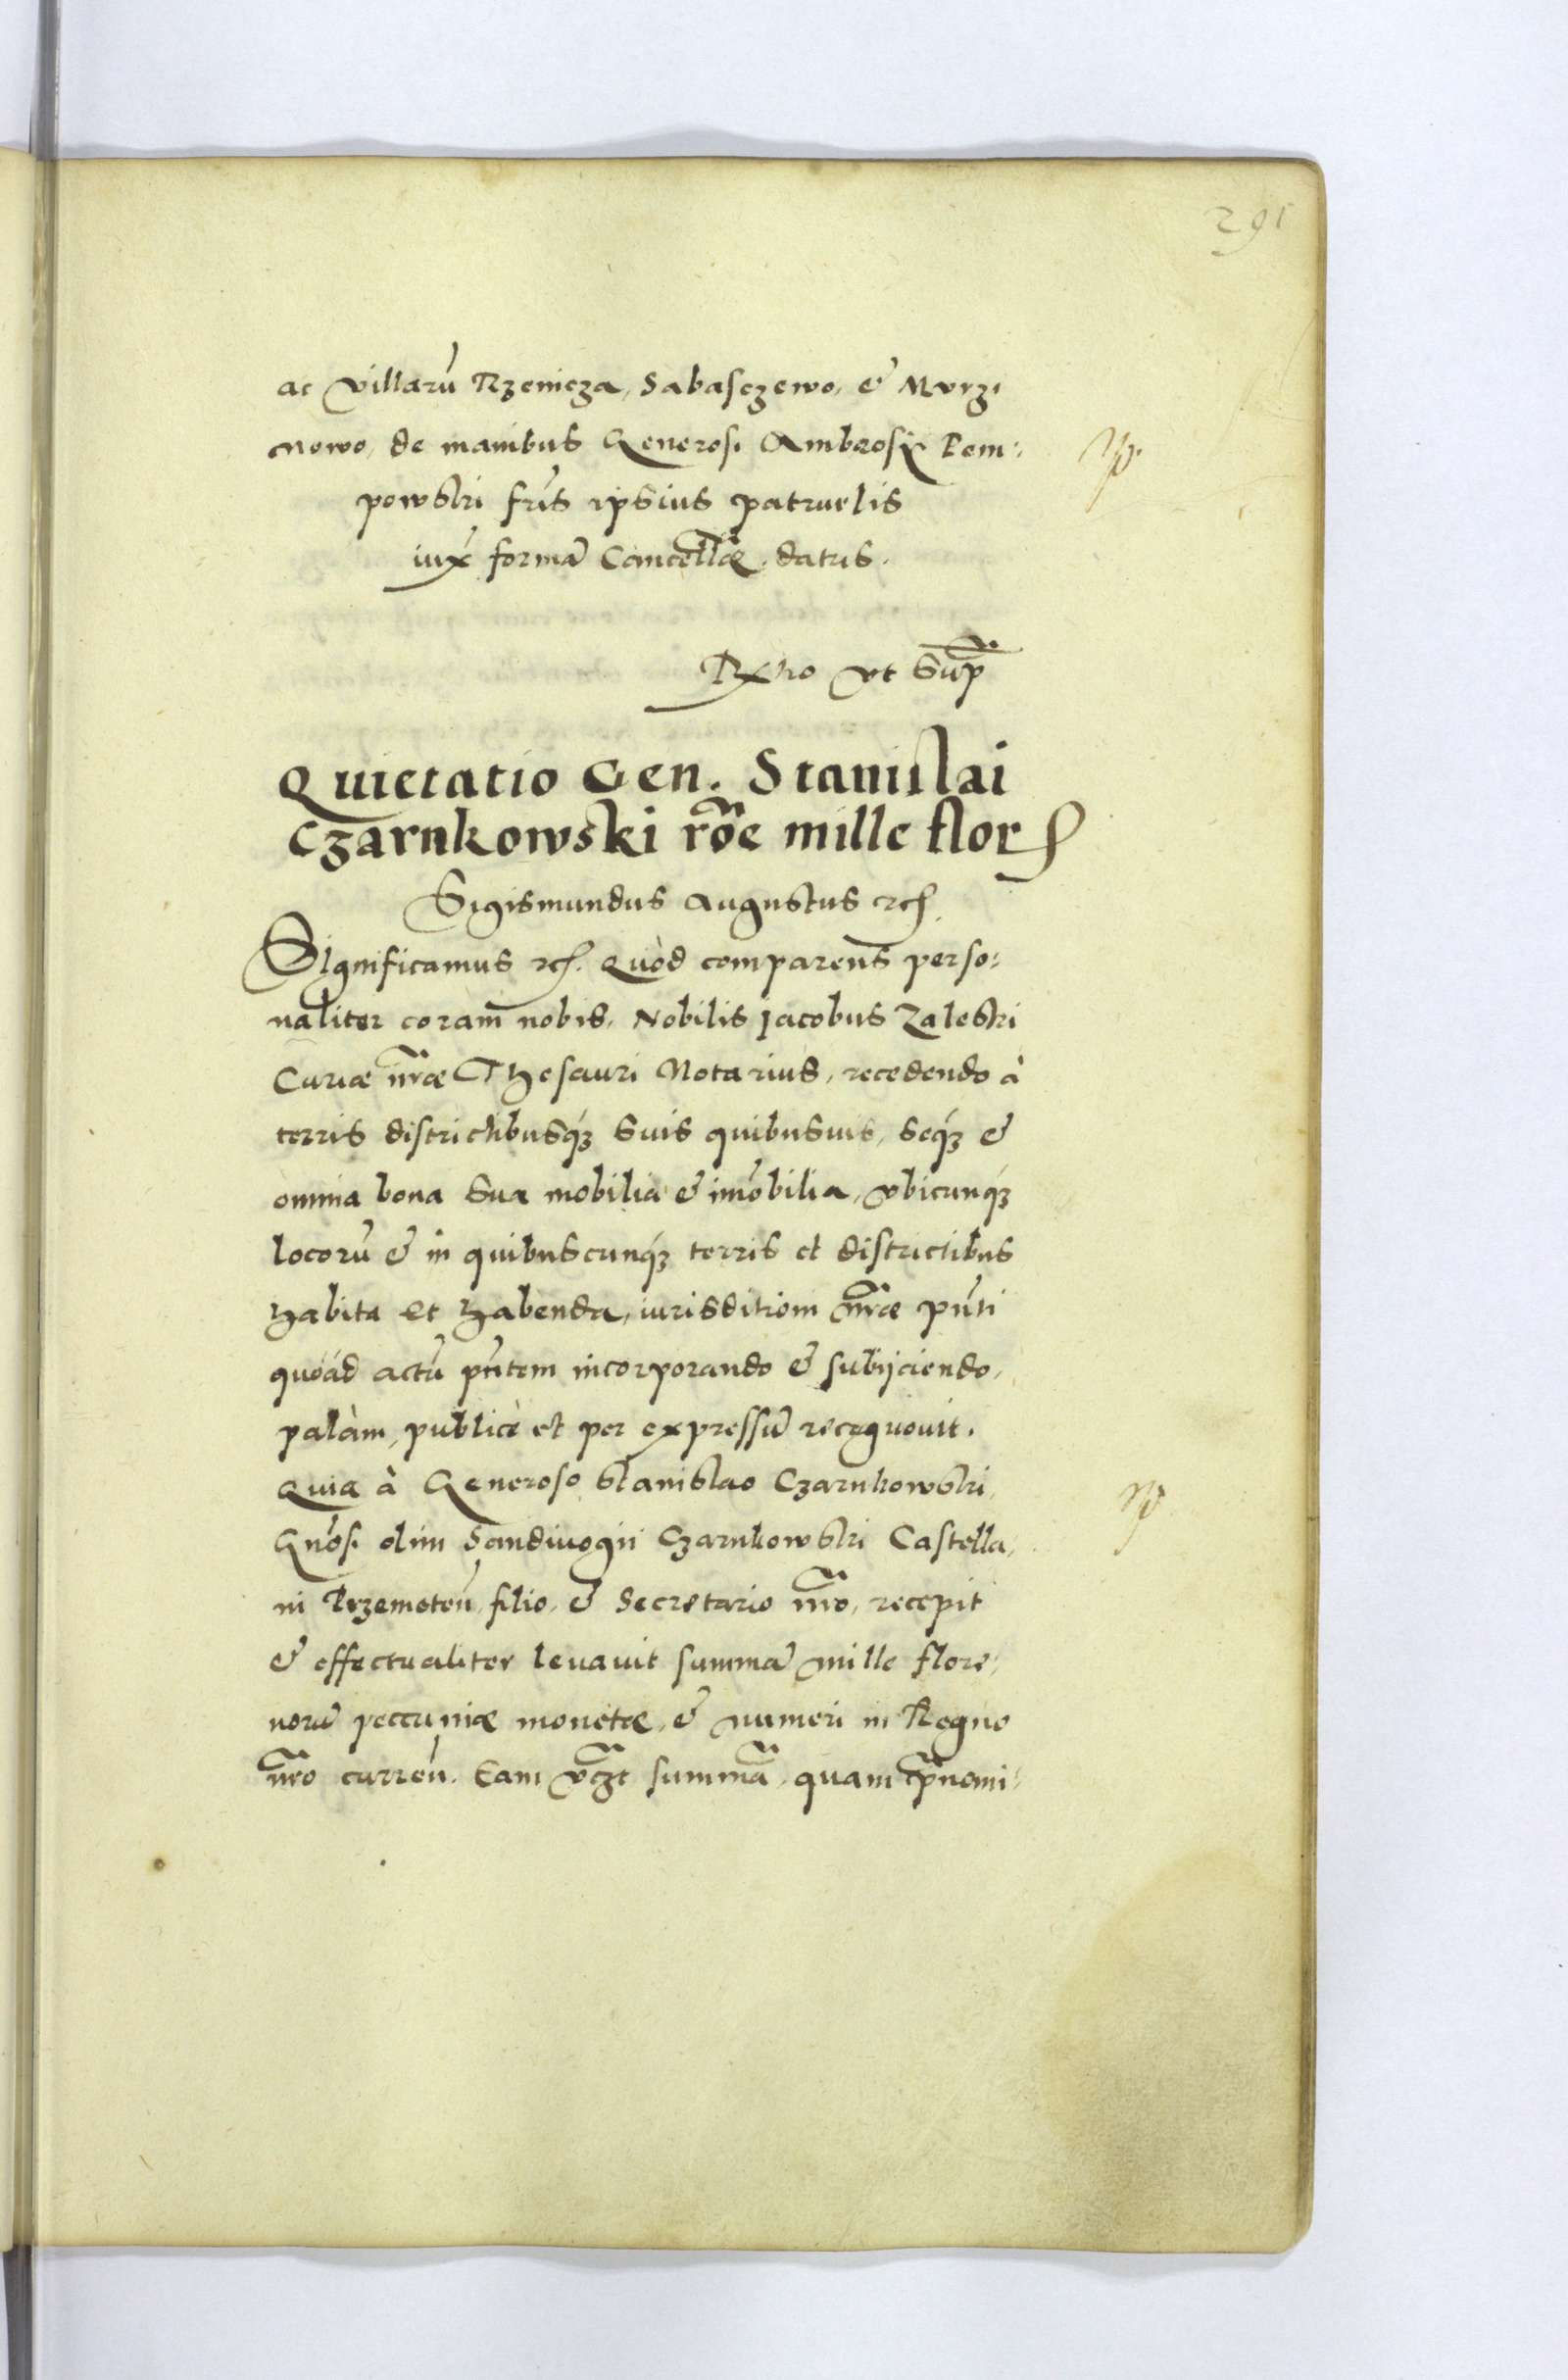 291
ac villarũ Rzenicza, Sabasczewo, & Murzi
nowo, de manibus Generosi Ambrosij Pem:
powski frĩs ipsius patruelis
iuxᵃ formã Cancellãæ datus.
Rᵒ ut supᷓ
Quietatio Gen. Stanislai
Czarnkowski rõe mille flor.
Sigismundus Augustus etc.
Significamus etc. Quòd comparens perso:
naliter coram nobis, Nobilis Jacobus Zaleski
Curiæ nr̃æ Thesauri Notarius, recedendo à
terris districtibusq́ꝫ suis quibusuis, seq́ꝫ &
omnia bona sua mobilia & im̃obilia, vbicunq́ꝫ
locorũ & in quibuscunq́ꝫ terris et districtibus
habita et habenda, iurisditioni nr̃æ pñti
quoad actũ pñtem incorporando & subijciendo,
palàm, publicè et per expressũ recognouit.
Quia à Generoso Stanislao Czarnkowski,
Gnõsi olim Sandiuogii Czarnkowski Castella,
ni Przemeteñ, filio, & Secretario nr̃o, recepit
& effectualiter leuauit summã mille flore:
norũ peccuniæ monetæ, & numeri in Regno
nr̃o curreñ. Eam vᷓczt summã, quam p̃nomi: